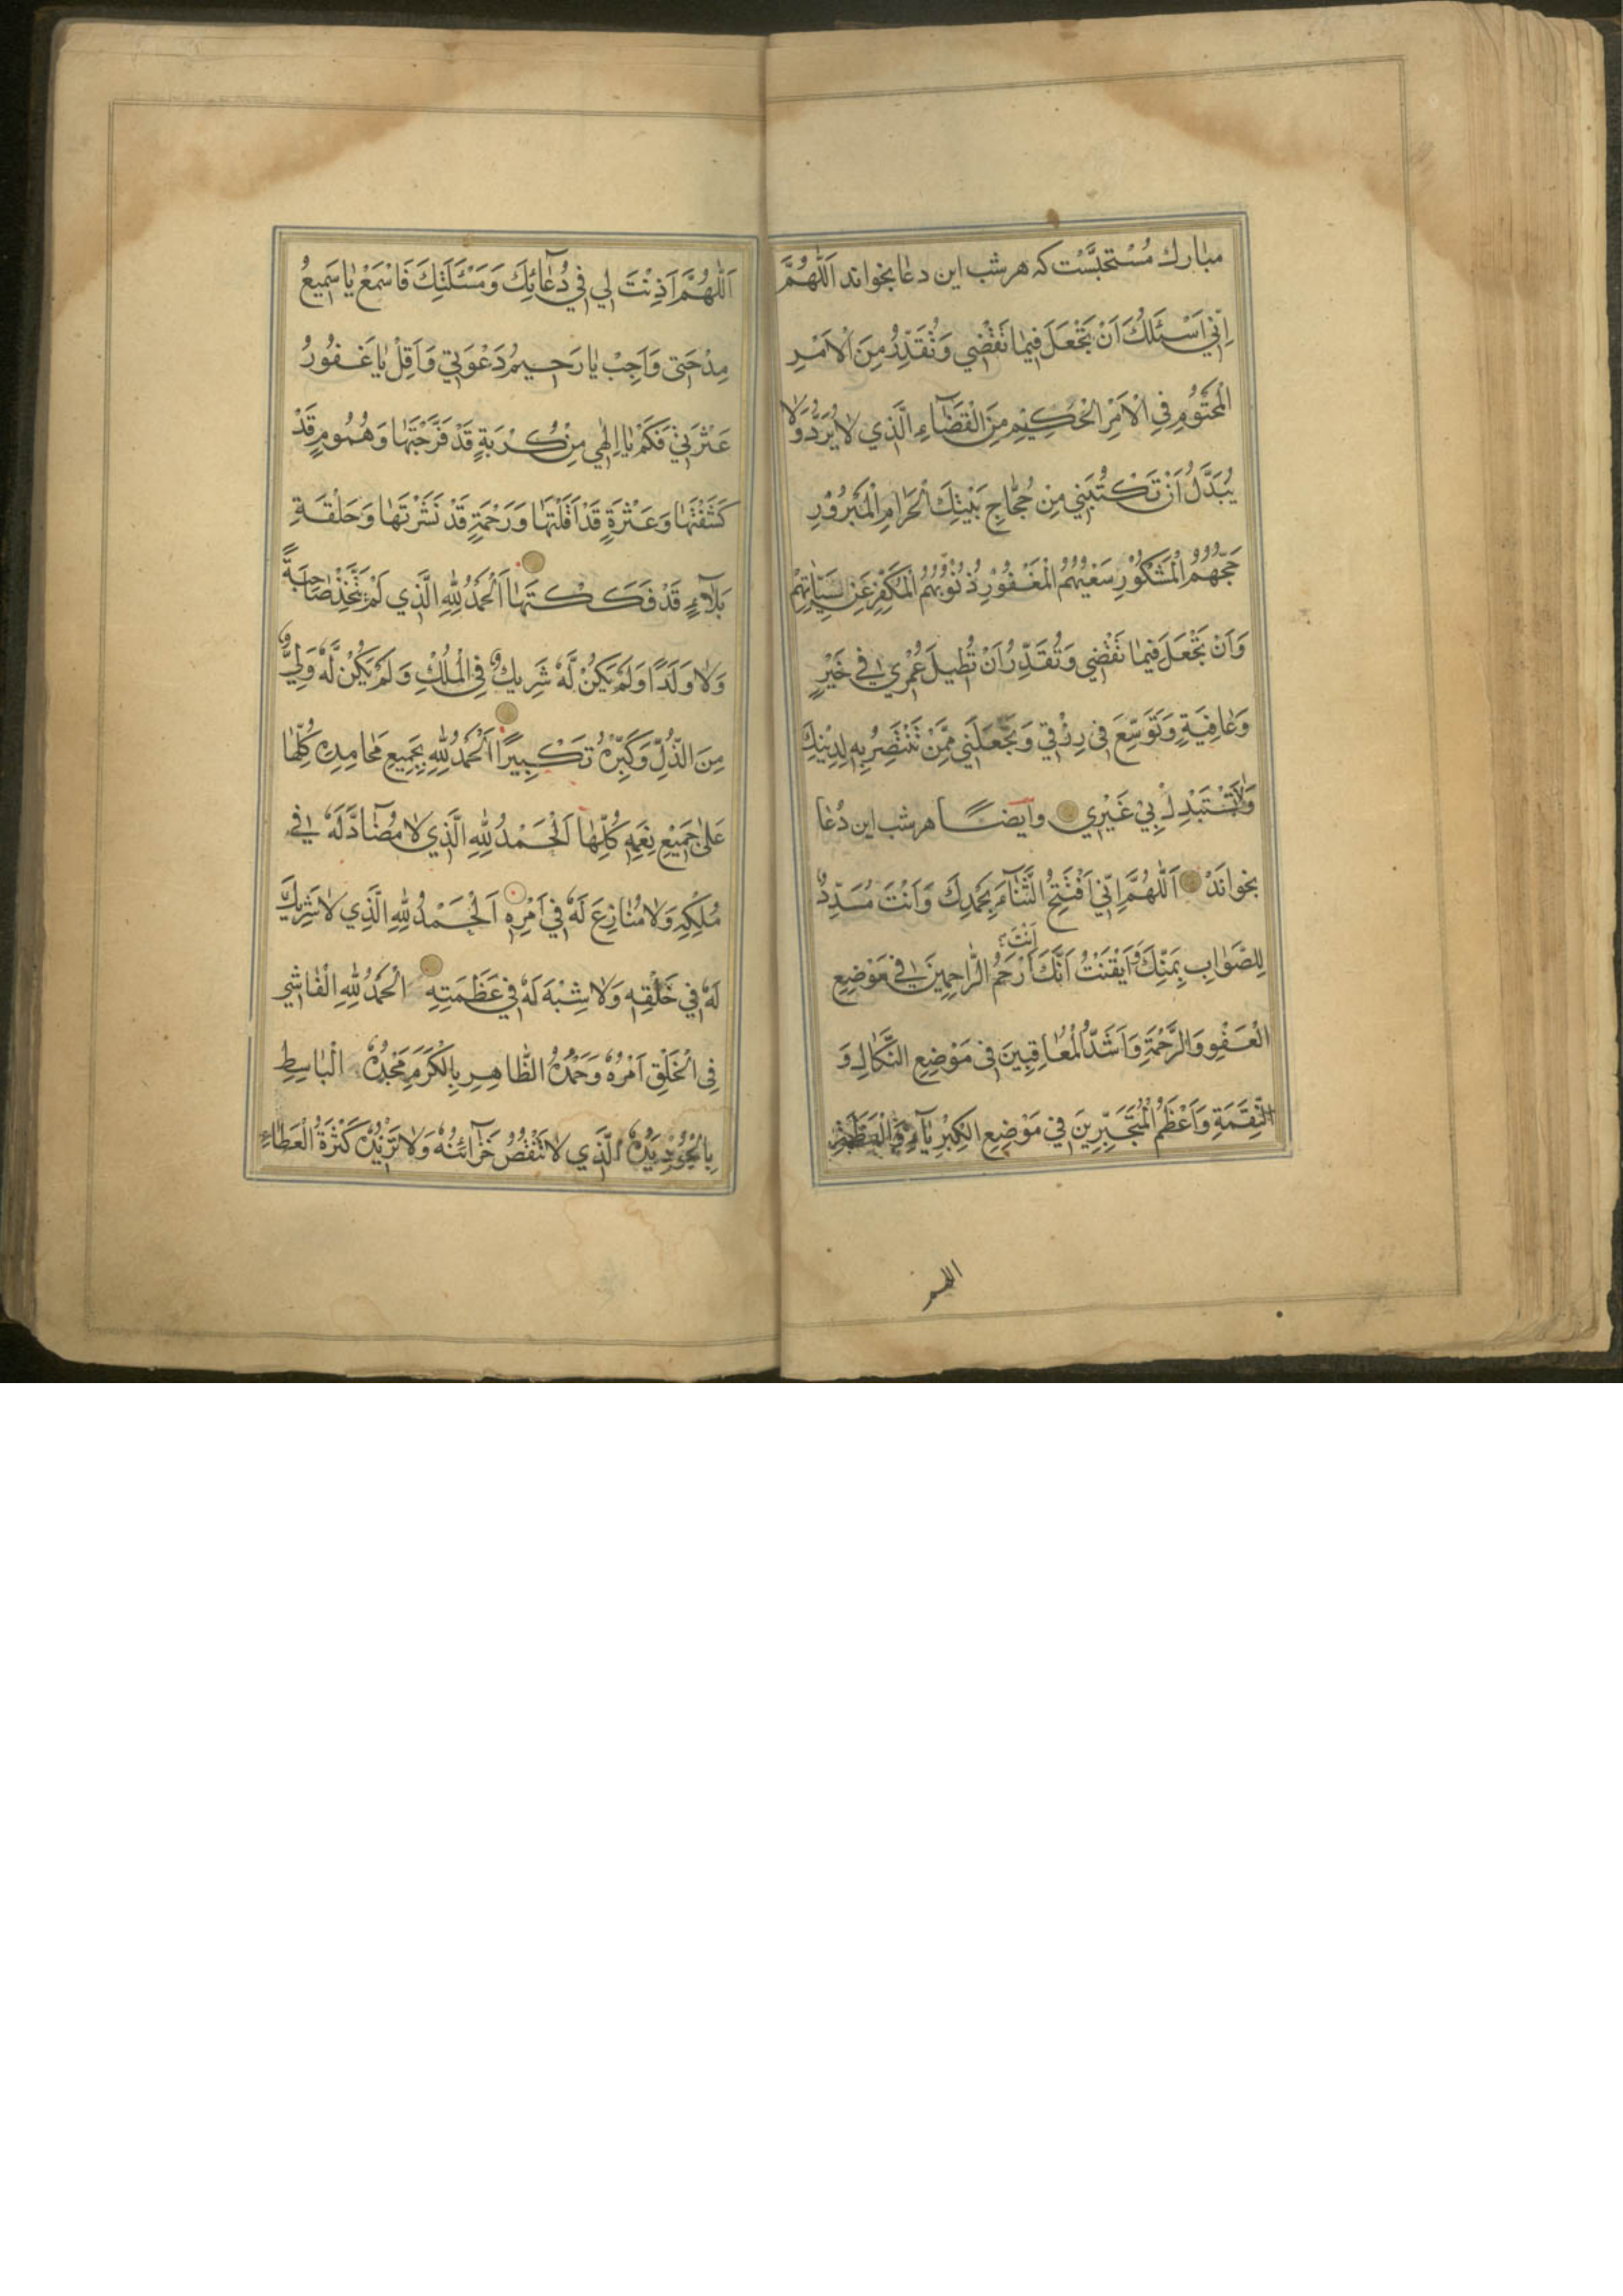 مبارك مُسْتحبَّسْت كه هر شب اين دعا بخواند اَللّٰهُمَّ
اِنّي اَسْئَلُكَ اَنْ تَجْعَلَ فيمٰا تَقْضي وَتُقَدِّرُ مِنَ الْاَمْرِ
الْمَحْتُوْمِ فِي الْاَمْرِ الْحَكِيْمِ مِنَ الْقَضٰاءِ الَّذي لاٰ يُرَدُّ وَلاٰ
يُبَدَّلُ اَنْ تَكْتُبَني مِنْ حُجّٰاجِ بَيْتِكَ الْحَرٰامِ الْمَبْرُوْرِ
حَجُّهُمُ الْمَشْكُوْرِ سَعْيُهُمُ الْمَغْفُوْرِ ذُنُوْبُهُمُ الْمُكَفَّرِ عَنْ سَيِّئٰاتِهِمْ
وَاَنْ تَجْعَلَ فيمٰا تَقْضي وَتُقَدِّرُ اَنْ تُطيلَ عُمْري في خَيْرٍ
وَعٰافِيَةٍ وَتُوَسِّعَ في رِزْقي وَتَجْعَلَني مِمَّنْ تَنْتَصِرُ بِهِ لِدِيْنِكَ
وَلاٰ تَسْتَبْدِلْ بِيْ غَيْري وايضًا هر شب اين دُعٰا
بخوانَدْ اَللّٰهُمَّ اِنّي اَفْتَتِحُ الثَّنٰآءَ بِحَمْدِكَ وَاَنْتَ مُسَدِّدٌ
لِلصَّوٰابِ بِمَنِّكَ وَاَيْقَنْتُ اَنَّكَ اَنْتَ اَرْحَمُ الرّٰاحِمِينَ في مَوْضِعِ
الْعَفْوِ وَالرَّحْمَةِ وَاَشَدُّ الْمُعٰاقِبِينَ في مَوْضِعِ النَّكٰالِ وَ
النَّقِمَةِ وَاَعْظَمُ الْمُتَجَبِّرِينَ في مَوْضِعِ الْكِبْرِيٰآءِ وَالْعَظَمَةِ
اللهم
اَللّٰهُمَّ اَذِنْتَ لي في دُعٰائِكَ وَمَسْئَلَتِكَ فَاسْمَعْ يٰا سَمِيعُ
مِدْحَتي وَاَجِبْ يٰا رَحيمُ دَعْوَتي وَاَقِلْ يٰا غَفُورُ
عَثْرَتي فَكَمْ يٰا اِلٰهي مِنْ كُرْبَةٍ قَدْ فَرَّجْتَهٰا وَهُمُومٍ قَدْ
كَشَفْتَهٰا وَعَثْرَةٍ قَدْ اَقَلْتَهٰا وَرَحْمَةٍ قَدْ نَشَرْتَهٰا وَحَلْقَةِ
بَلآءٍ قَدْ فَكَكْتَهٰا اَلْحَمْدُ لِلّٰهِ الَّذي لَمْ يَتَّخِذْ صٰاحِبَةً
وَلاٰ وَلَدًا وَلَمْ يَكُنْ لَهُ شَرِيكٌ فِي الْمُلْكِ وَلَمْ يَكُنْ لَّهُ وَلِيٌّ
مِنَ الذُّلِّ وَكَبِّرْهُ تَكْبِيرًا اَلْحَمْدُ لِلّٰهِ بِجَمِيعِ مَحٰامِدِهِ كُلِّهٰا
عَلىٰ جَمِيْعِ نِعَمِهِ كُلِّهٰا اَلْحَمْدُ لِلّٰهِ الَّذي لاٰ مُضٰادَّ لَهُ في
مُلْكِهِ وَلاٰ مُنٰازِعَ لَهُ في اَمْرِهِ اَلْحَمْدُ لِلّٰهِ الَّذي لاٰ شَرِيكَ
لَهُ في خَلْقِهِ وَلاٰ شِبْهَ لَهُ في عَظَمَتِهِ اَلْحَمْدُ لِلّٰهِ الْفٰاشي
فِي الْخَلْقِ اَمْرُهُ وَحَمْدُهُ الظّٰاهِرِ بِالْكَرَمِ مَجْدُهُ الْبٰاسِطِ
بِالْجُوْدِ يَدَهُ الَّذي لاٰ تَنْقُصُ خَزٰآئِنُهُ وَلاٰ تَزِيْدُهُ كَثْرَةُ الْعَطٰاءِ